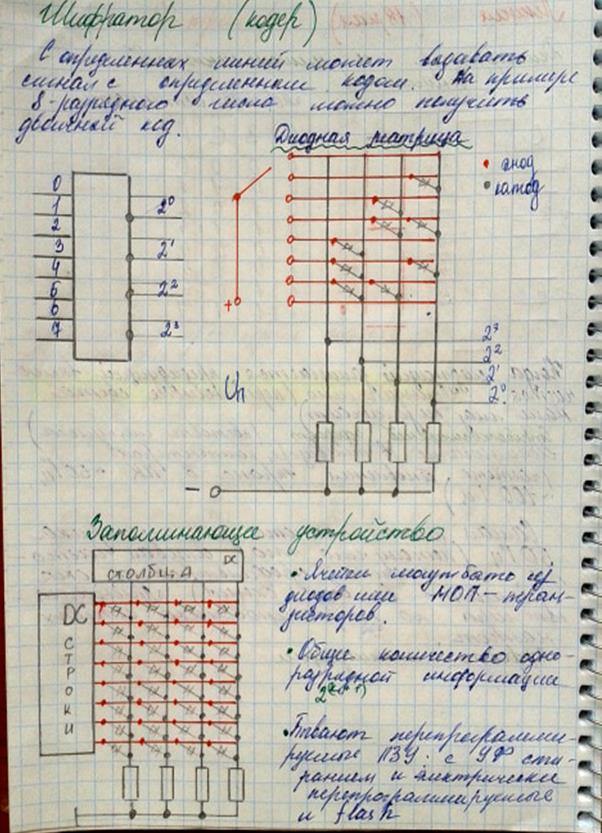 Шифратор (кодер)
С определенных линий может выдавать
сигнал с определенным кодом. На примере
8-разрядного числа можно получить
двоичный код.
Диодная матрица
анод
катод
0
1 2⁰
2
3 2¹
4
5 2²
6
7 2³
+
2³
2²
2¹
2⁰
Uп
−
Запоминающее устройство
DC
столбца
DC
строки
• Ячейки могут быть из
диодов или МОП-тран-
зисторов.
• Общее количество одно-
разрядной информации
• Бывают перепрограмми-
руемые ПЗУ: с УФ сти-
ранием и электрически
перепрограммируемые
и flash